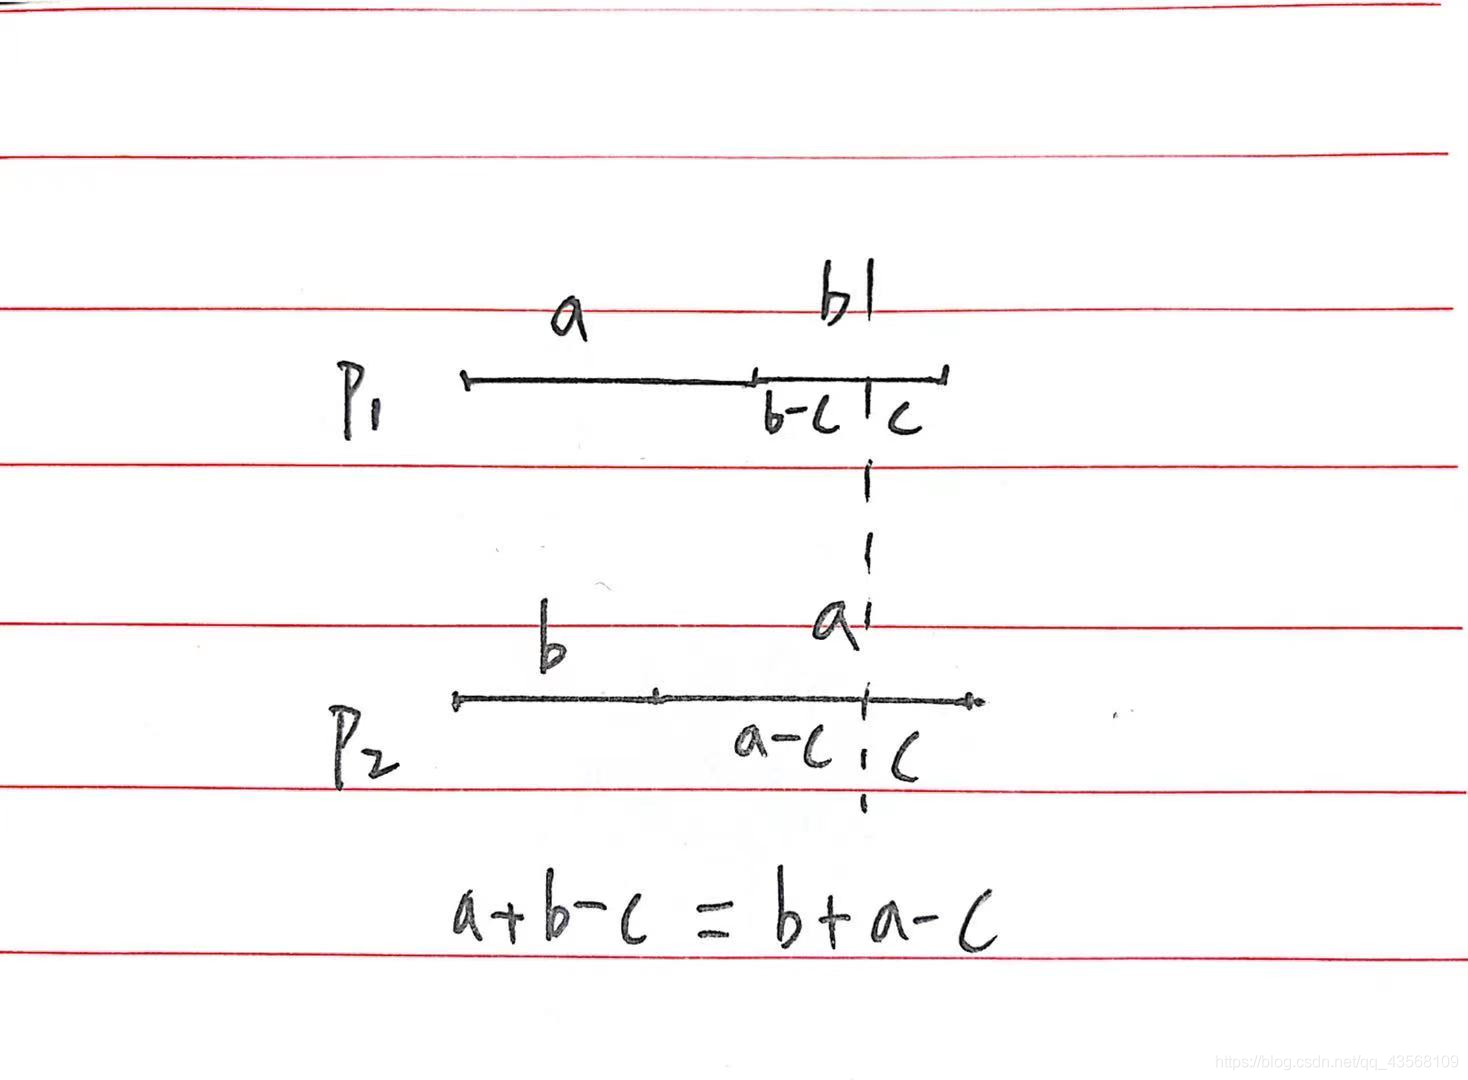 a b
P1
b-c c
b a
P2
a-c c
a+b-c = b+a-c
https://blog.csdn.net/qq_43568109